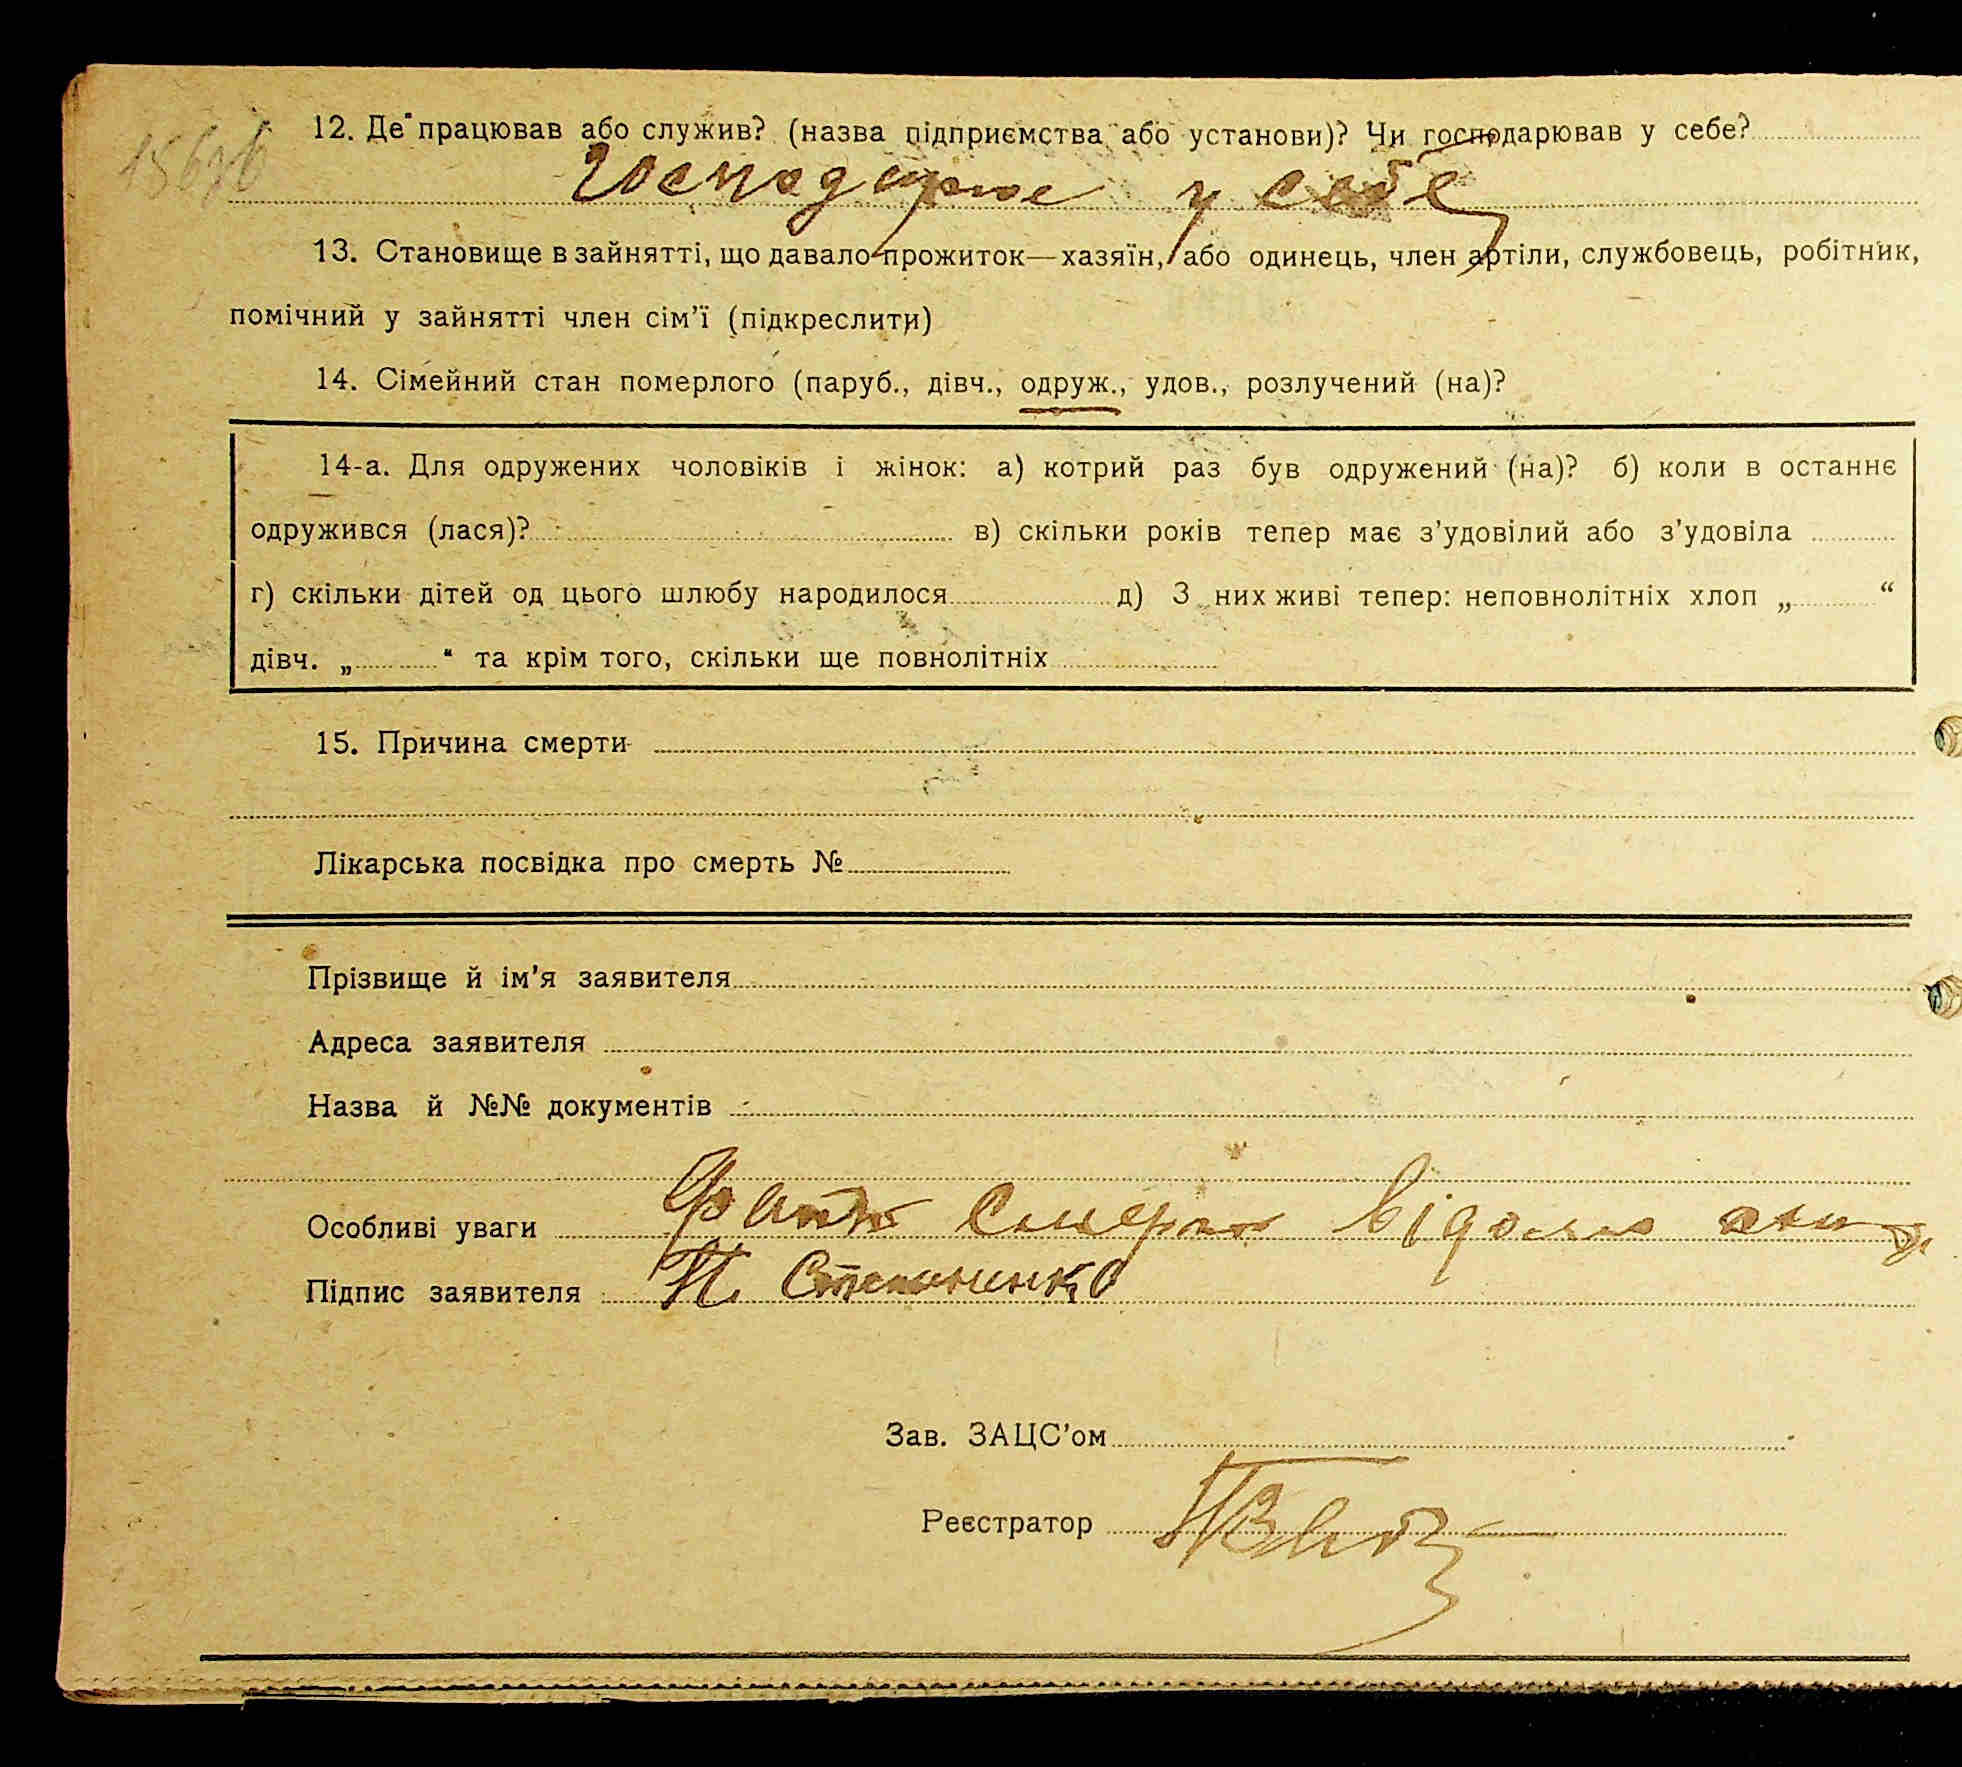 12. Де працював або служив? (назва підприємства або установи)? Чи господарював у себе?
Господарює у себе
13. Становище в зайнятті, що давало прожиток—хазяїн, або одинець, член артіли, службовець, робітник,
помічний у зайнятті член сім’ї (підкреслити)
14. Сімейний стан померлого (паруб., дівч., одруж., удов., розлучений (на)?
14-а. Для одружених чоловіків і жінок: а) котрий раз був одружений (на)? б) коли в останнє
одружився (лася)? в) скільки років тепер має з’удовілий або з’удовіла
г) скільки дітей од цього шлюбу народилося д) З них живі тепер: неповнолітніх хлоп „ “
дівч. „ “ та крім того, скільки ще повнолітніх
15. Причина смерти
Лікарська посвідка про смерть №
Прізвище й ім’я заявителя
Адреса заявителя
Назва й №№ документів
Особливі уваги Факт смерти відомий
Підпис заявителя
Зав. ЗАЦС’ом
Реєстратор